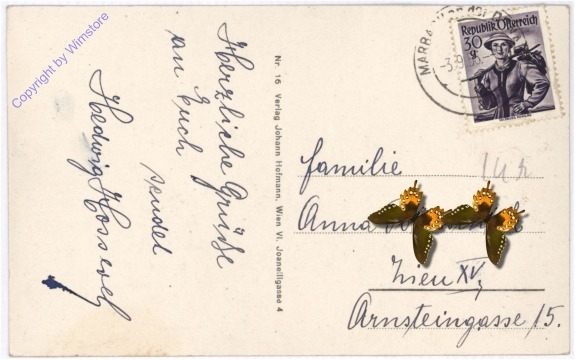 Copyright by Wimstore
Herzliche Grüße
an Euch
sendet
Hedwig
Nr. 16 Verlag Johann Hofmann, Wien VI. Josneiligasse 4
30 g
Republik Österreich
Familie
Anna
Wien XV,
Arnsteingasse 15.